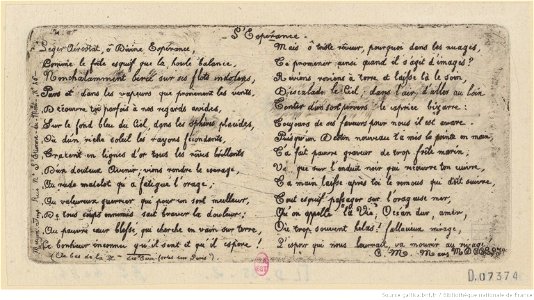 L'Espérance.
Léger Aérostat, ô Divine Espérance,
Comme le frêle esquif que la houle balance,
Nonchalamment bercé sur ses flots indolens,
Pars et dans les vapeurs que promènent les vents,
Découvre toi parfois à nos regards avides,
Sur le fond bleu du Ciel, dans les sphères placides,
Où d'un riche soleil les rayons féconds,
Tracent en lignes d'or tous les rêves brillants
D'un douteux Avenir; viens rendre le courage,
Au rude matelot qu'a fatigué l'orage;
Au valeureux guerrier qui pour un sort meilleur,
De tous coups ennemis sait braver la douleur;
Au pauvre cœur blessé, qui cherche en vain sur terre,
Ce bonheur inconnu qu'il sent et qu'il espère!
Mais ô triste rêveur, pourquoi dans les nuages,
Te promener ainsi quand il s'agit d'images?
Reviens reviens à terre et laisse là le soin,
D'escalader le Ciel; dans l'air, d'aller au loin
Conter dans sort pervers le caprice bizarre:
Toujours de ses faveurs pour nous il est avare.
Puisqu'un Destin nouveau t'a mis la pointe en main,
Ta fait pauvre graveur de trop frêle marin;
Vê que sur l'enduit noir qui recouvre ton cuivre,
Ta main laisse après toi le remous qui doit suivre,
Tout esquif passager sur l'orageuse mer,
Qu'on appelle "La Vie", Océan dur, amer,
Où trop souvent hélas! fallacieux mirage,
L'espoir qui nous berçait, va mourir au rivage
C. M.
D.07374
Source gallica.bnf.fr / Bibliothèque nationale de France